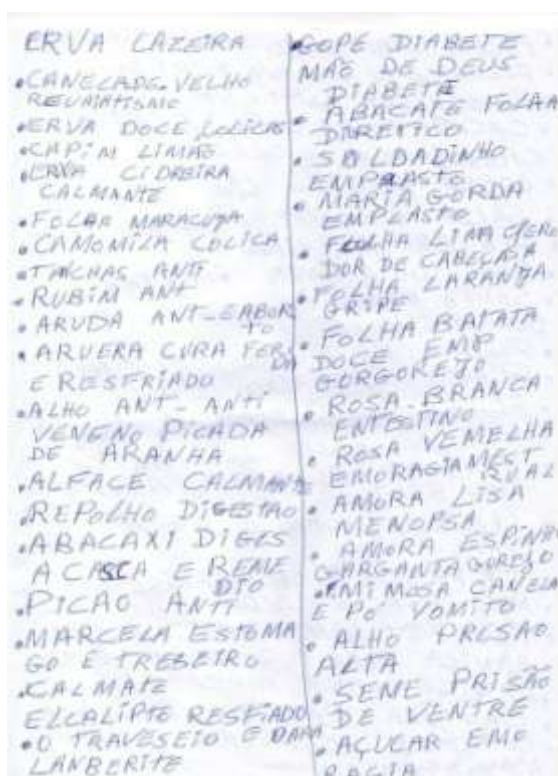 ERVA CAZEIRA
•CANELADE.VELHO
REUMATISMO
•ERVA DOCE COLICAS
•CAPIM LIMAO
•ERVA CIDREIRA
CALMANTE
•FOLAA MARACUJA
•CAMOMILA COLICA
•TANCHAS ANTI
•RUBIM ANT
•ARUDA ANT-EABOR
TO
•ARUERA CURA FERI
DA
E RESFRIADO
•ALHO ANT-ANTI
VENENO PICADA
DE ARANHA
•ALFACE CALMANTE
•REPOLHO DIGESTAO
•ABACAXI DIGES
A CASCA E REME
DIO
•PICAO ANTI
•MARCELA ESTOMA
GO E TREBEIRO
•CALMATE
ELCALIPTO RESFIADO
•O TRAVESEIO E PARA
LANBERITE
•GOPE DIABETE
MÃO DE DEUS
DIABETE
•ABACATE FOLAA
DIREITICO
•SOLDADINHO
EMPLASTO
•MARIA GORDA
EMPLASTO
•FOLHA LIMA
DOR DE CABEÇA
•FOLHA LARANJA
GRIPE
•FOLHA BATATA
DOCE EMP
GORGOREJO
•ROSA.BRANCA
ENTESTINO
•ROSA VEMELHA
EMORAGIA MEST
RUAL
•AMORA LISA
MENOPSA
•AMORA ESPINHO
GARGANTA GOREJO
•EMIMOSA CANELA
E PO VOMITO
•ALHO PRESAO
ALTA
•SENE PRISÃO
DE VENTRE
•AÇUCAR EMO
RAGIA